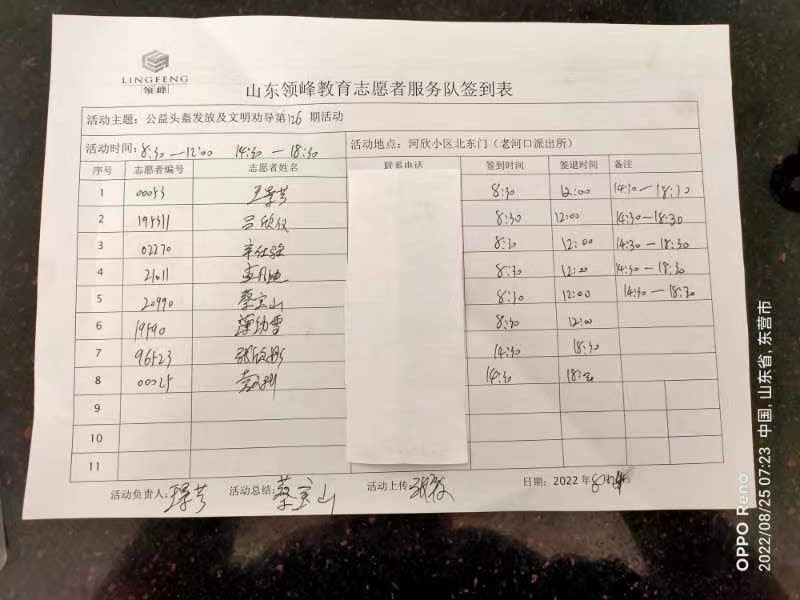 LINGFENG
领峰
山东领峰教育志愿者服务队签到表
活动主题：公益头盔发放及文明劝导第126期活动
活动时间：8:30—12:00 14:30—18:30 活动地点：河欣小区北东门（老河口派出所）
序号 志愿者编号 志愿者姓名 联系电话 签到时间 签退时间 备注
1 00053 8:30 12:00 14:30—18:30
2 195311 吕欣仪 8:30 12:00 14:30—18:30
3 02270 8:30 12:00 14:30—18:30
4 21011 8:30 12:00 14:30—18:30
5 20990 蔡宝山 8:30 12:00 14:30—18:30
6 19590 8:30 12:00
7 96523 14:30 18:30
8 00025 14:30
9
10
11
活动负责人： 活动总结：蔡宝山 活动上传： 日期：2022年8月
OPPO Reno
2022/08/25 07:23 中国, 山东省, 东营市